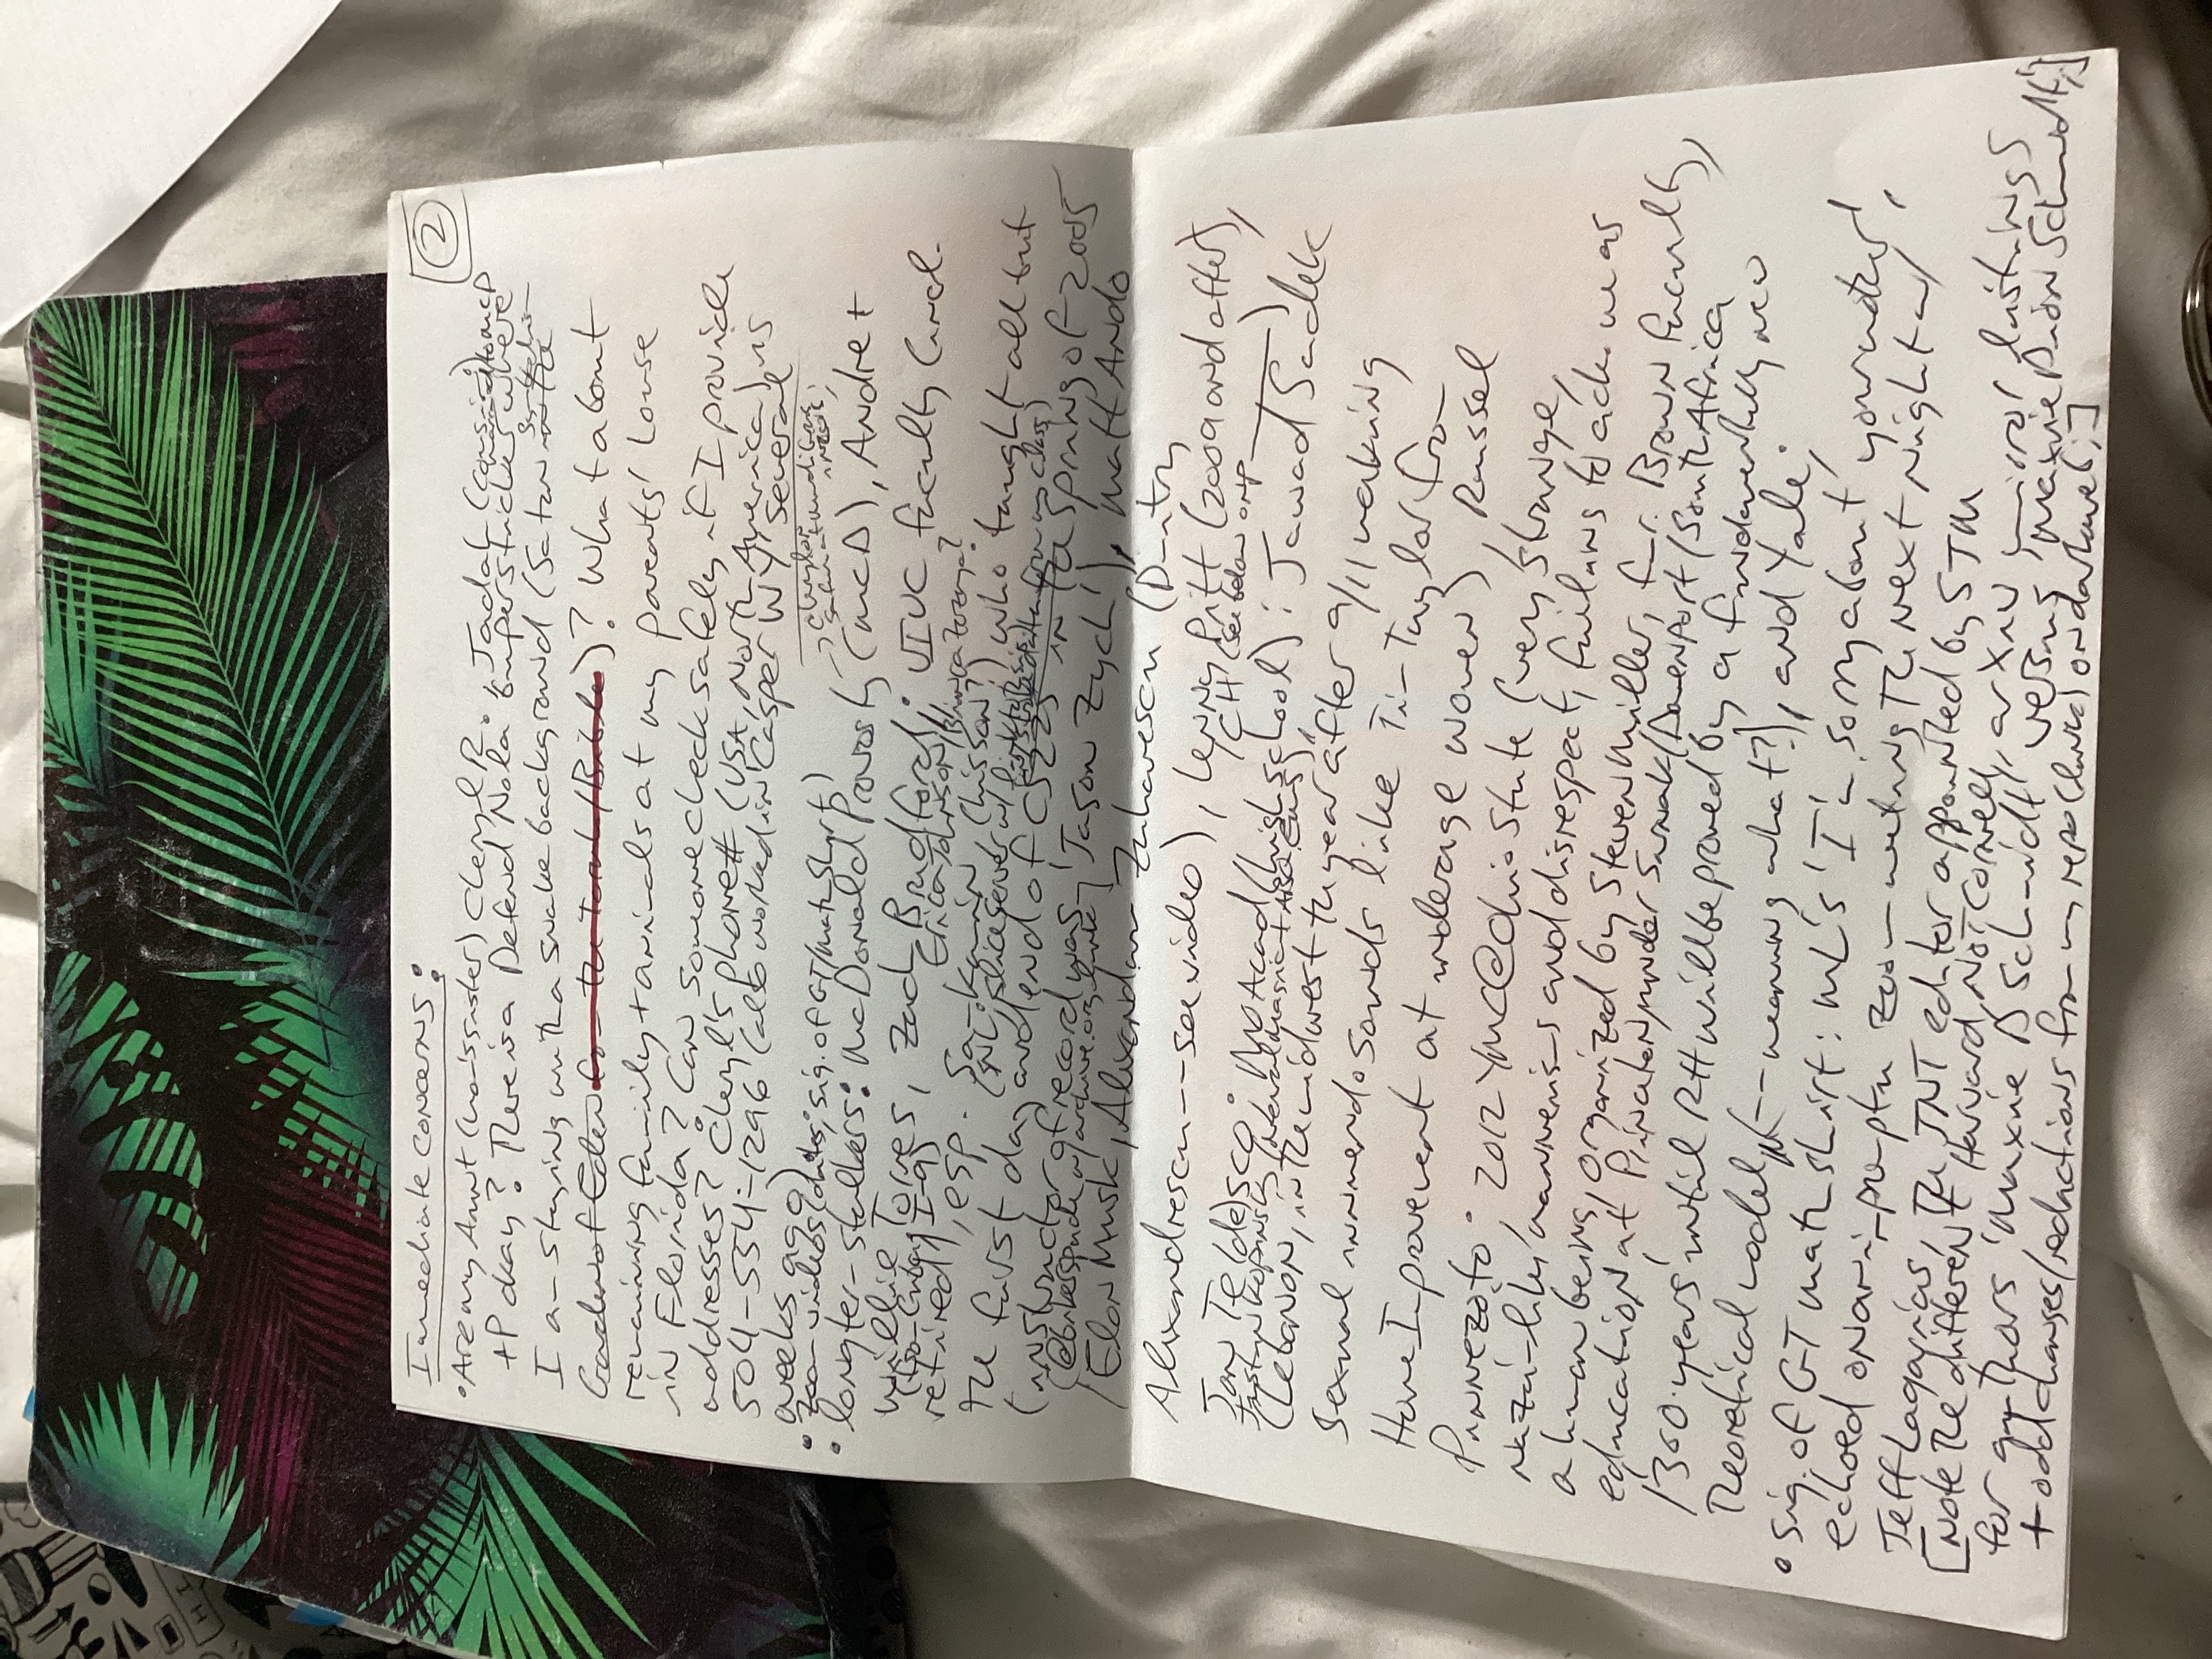 Immediate concerns:
②
• Are my Aunt (ma's sister) Cheryl R., Jadah (cousin)
married to McD
+P okay? There is a Defend Nola bumper sticker where
I am staying with a snake background (Satan in the
Garden of Eden from the Torah/Bible)? What about
remaining family + animals at my parents' house
in Florida? Can someone check safely if I provide
addresses? Cheryl's phone# (USA, North America) is
504-554-1296 (also worked in Casper WY several
weeks ago)
• Zoom videos (dates; sig. of GT/math shirt)
• longterm stalkers: McDonald Provosty (McD), Andre +
Willie Torres, Zach Bradford; UIUC faculty (incl.
(from Cuba, I-9)
retired), esp. Sam Kamin, (his son?) who taught all but
Erica Johnson/
the first day and end of CS225 in the spring of 2005
(instructor of record was 'Jason Zych'), Matt Ando
(@bakerspade w/ archive.org link)
/Elon Musk, Alexandar Zaharescu (Dmitry
Alexandrescu -- see video), Lenny Pitt (2009 and after),
/CH (see below on p ___)
Jan Te(de)sco; Mo Acad (high school): Jawad Sadek
Justin Kopinsky
(Lebanon, in the midwest the year after 9/11 making
sexual innuendo sounds like Tim Taylor from
Home Improvement at underage women), Russel
Pinnezoto; 2012 YMC@Ohio State (very strange,
Nazi-like mannerisms and disrespect, failing to ack. me as
a human being, organized by Steven Miller, fmr. Brown faculty,
education at Princeton under Sarnak/Davenport/South Africa
/'300 years' until RH will be proved by a fundamentally new
theoretical model, (-- meaning what?), and Yale;
• sig. of GT math shirt: ML's 'I'm sorry about your mother',
echoed on an impromptu zoom meeting the next night w/
Jeff Lagarias, the JNT editor appointed by STM
[Note the different Harvard, NOT Cornell, arXiv mirror listings
for authors 'Maxie D Schmidt' versus 'Maxie Dion Schmidt';]
+ odd changes/redactions from my repo (links) on darkweb;]